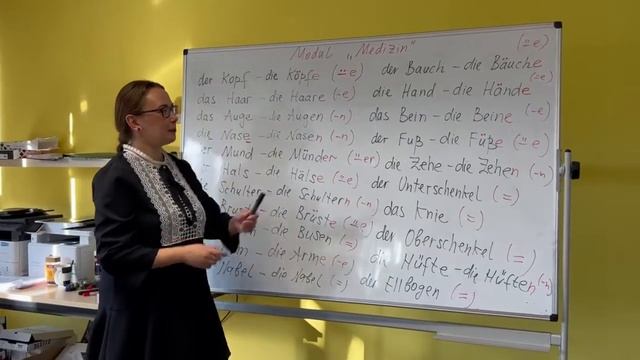 Modul „Medizin"
der Kopf – die Köpfe (¨e)
das Haar – die Haare (-e)
das Auge – die Augen (-n)
die Nase – die Nasen (-n)
Mund – die Münder (¨er)
Hals – die Hälse (¨e)
Schulter – die Schultern (-n)
die Brüste (¨e)
die Busen (=)
die Arme (-e)
Nabel – die Nabel (=)
(¨e)
der Bauch – die Bäuche
die Hand – die Hände (¨e)
das Bein – die Beine (-e)
der Fuß – die Füße (¨e)
die Zehe – die Zehen (-n)
der Unterschenkel (=)
das Knie (=)
der Oberschenkel (=)
die Hüfte – die Hüften (-n)
der Ellbogen (=)